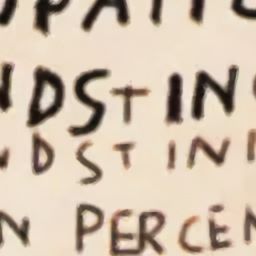 UPATIC
NDSTINC
NDSTINI
N PERCEN